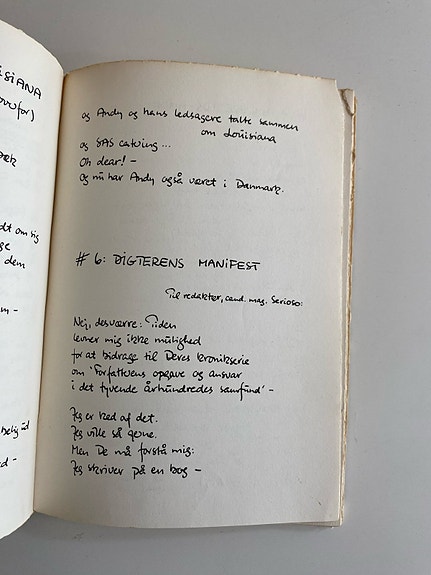 SIANA
ovufor)
dt om sig
ge
dem
m -
belig ud
d -
og Andy og hans ledsagere talte sammen
om Louisiana
og SAS catering ...
Oh dear! -
og nu har Andy også været i Danmark.
# 6: DIGTERENS MANIFEST
Til redaktør, cand. mag. Serioso:
Nej, desværre: Tiden
levner mig ikke mulighed
for at bidrage til Deres kronikserie
om 'Forfatterens opgave og ansvar
i det tyvende århundredes samfund' -
Jeg er ked af det.
Jeg ville så gerne.
Men De må forstå mig:
Jeg skriver på en bog -